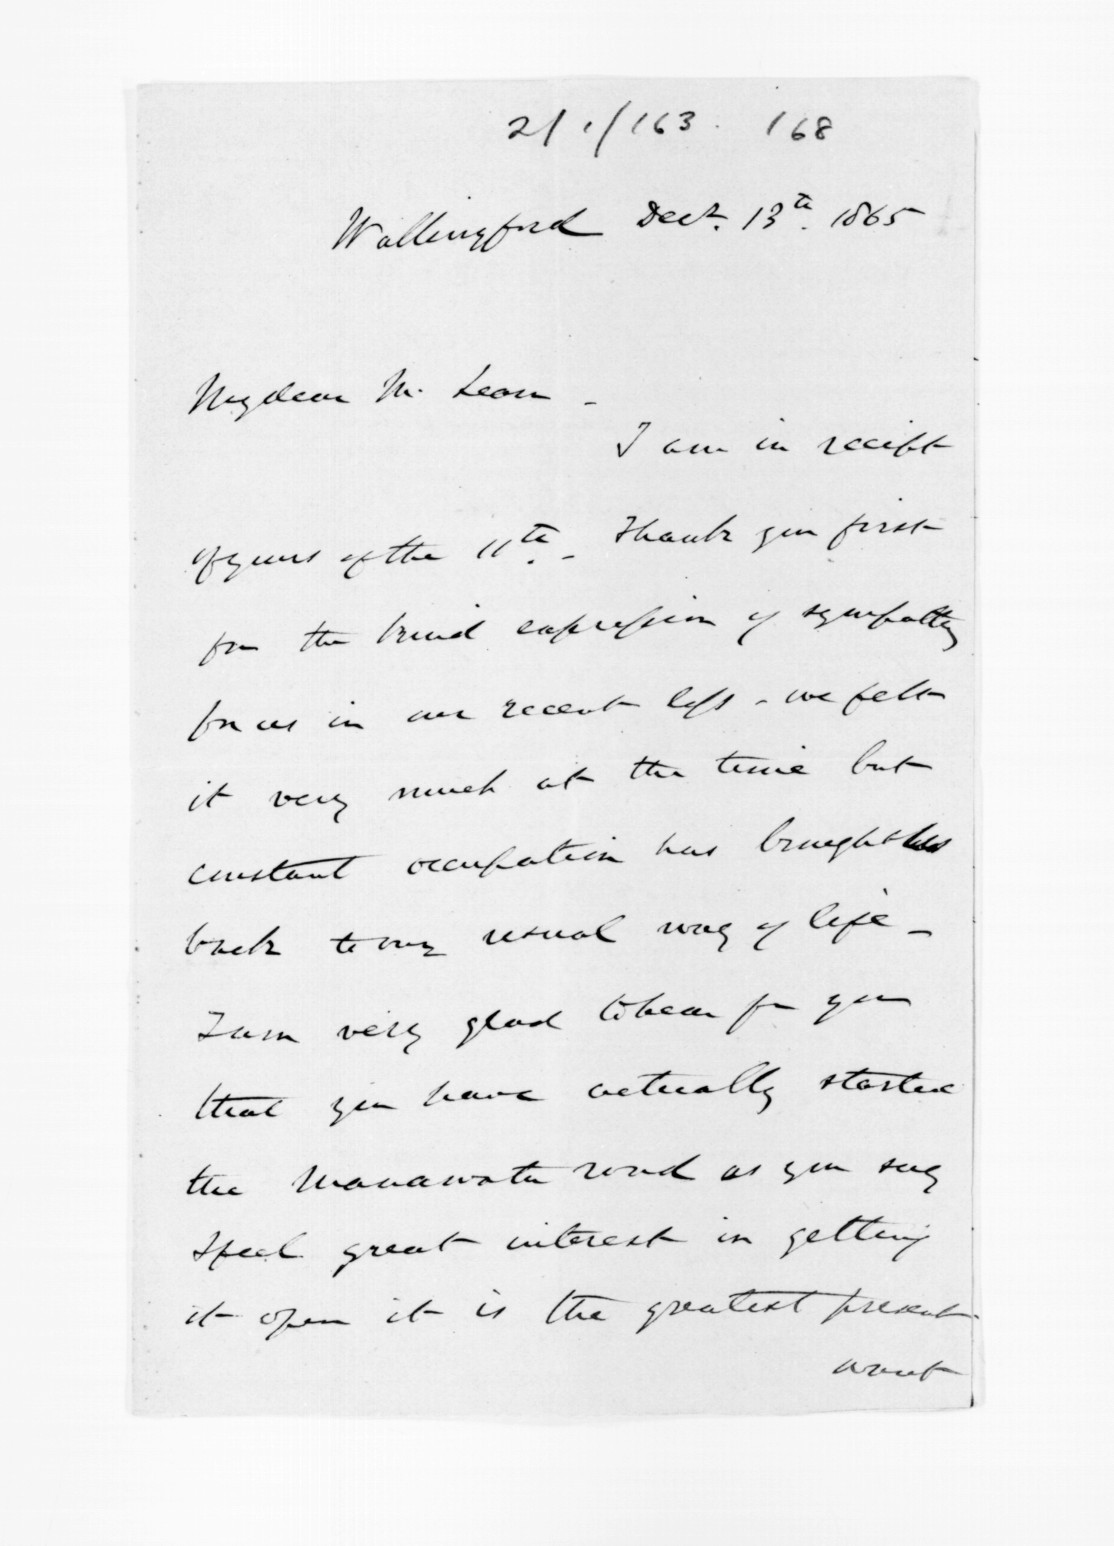 2/1/163. 168
Wallingford Decr. 13th. 1865
My dear Mc Lean -
I am in receipt
of yours of the 11th. - Thank you first
for the kind expression of sympathy
for us in our recent loss - we felt
it very much at the time but
constant occupation has brought
back to my usual way of life -
I am very glad to hear fr you
that you have actually started
the Manawatu road as you say
I feel great interest in getting
it open it is the greatest present
want